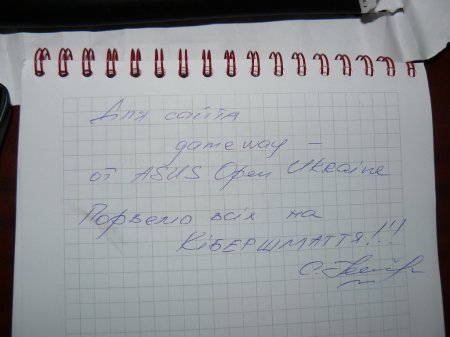 Для сайта
gameway –
от ASUS Open Ukraine
Порвемо всіх на
КІБЕРШМАТТЯ!!!